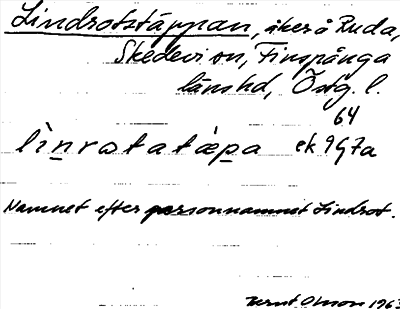 Lindrotstäppan, åker å Ruda,
Skedevi sn, Finspånga
länshd, Östg. l.
64
lìnrotatæpa ek 9G7a
Namnet efter personnamnet Lindrot.
Bernt Olsson 1963